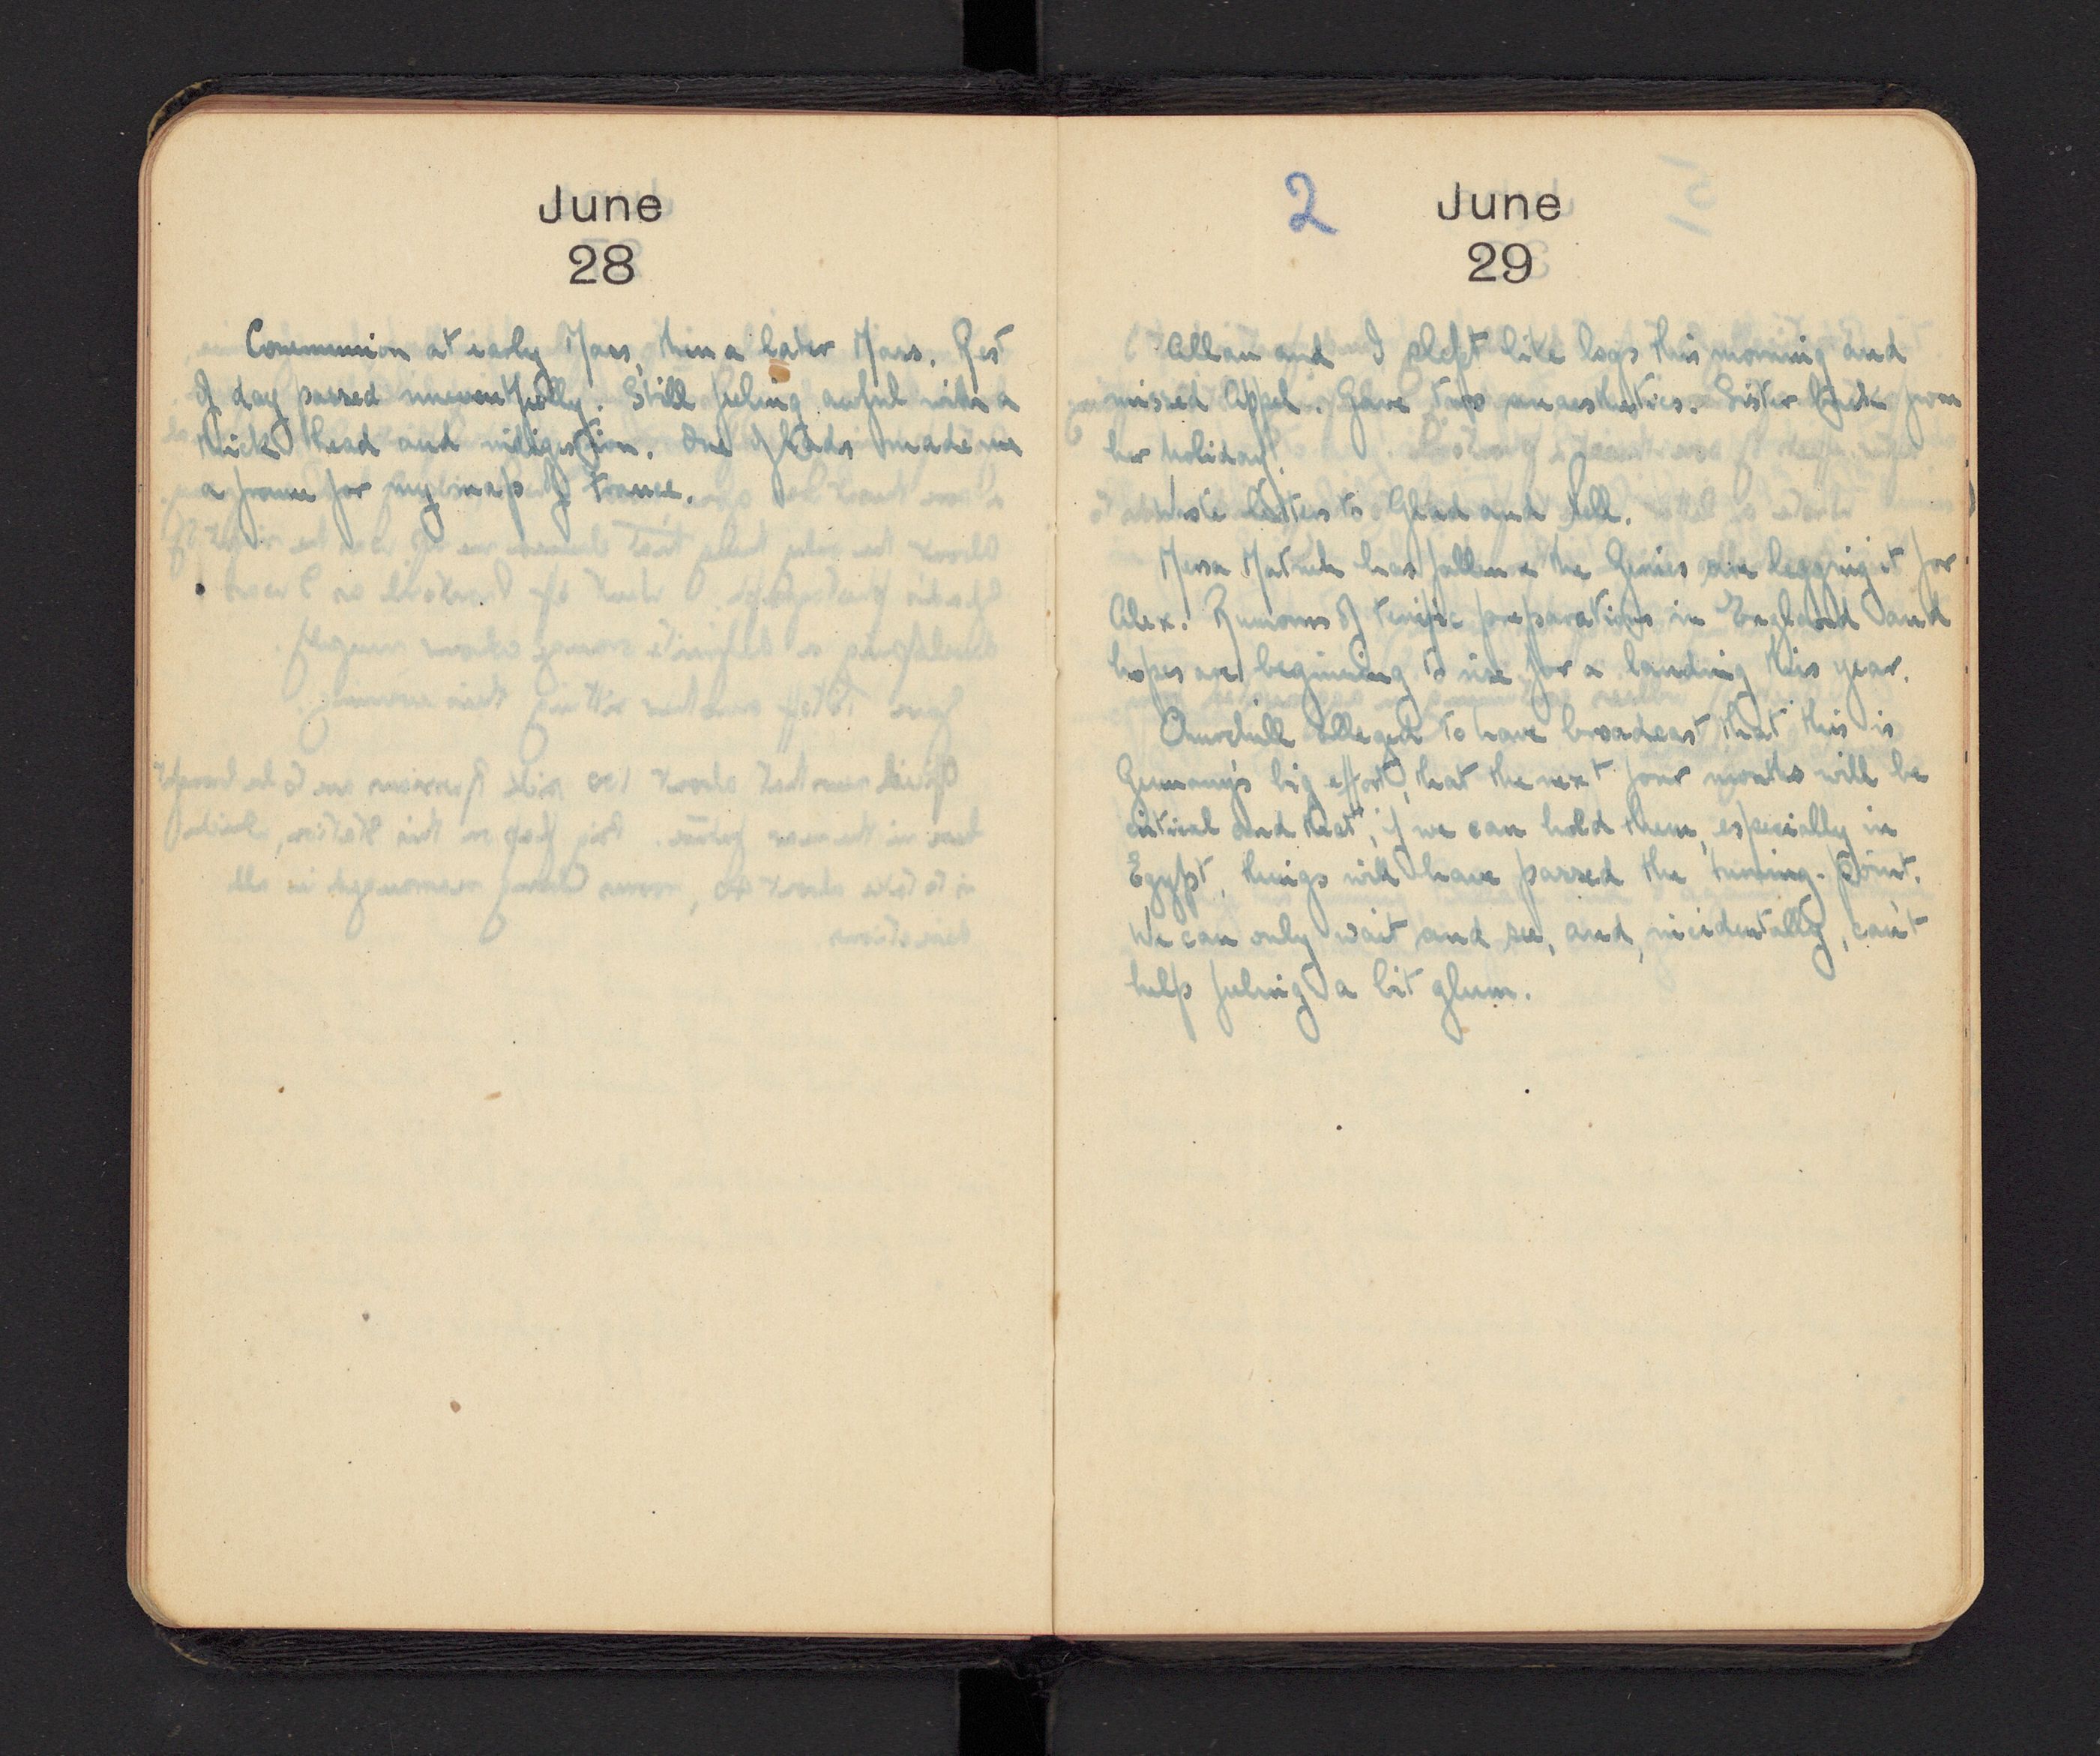 June
28
Communion at early Mass, then a later Mass. Rest
of day passed uneventfully. Still feeling awful with a
thick head and indigestion. One of lads made me
a frame for my map of France.
2
June
29
Allan and I slept like logs this morning and
missed Appel. Gave two anaesthetics. Sister back from
her holiday.
Wrote letters to Glad and Nell.
Mersa Matruh has fallen & the Gerries are legging it for
Alex. Rumours of terrific preparations in England and
hopes are beginning to rise for a landing this year.
Churchill alleged to have broadcast that this is
Germany's big effort, that the next four months will be
critical and that, if we can hold them, especially in
Egypt, things will have passed the turning-point.
We can only wait and see, and, incidentally, can't
help feeling a bit glum.